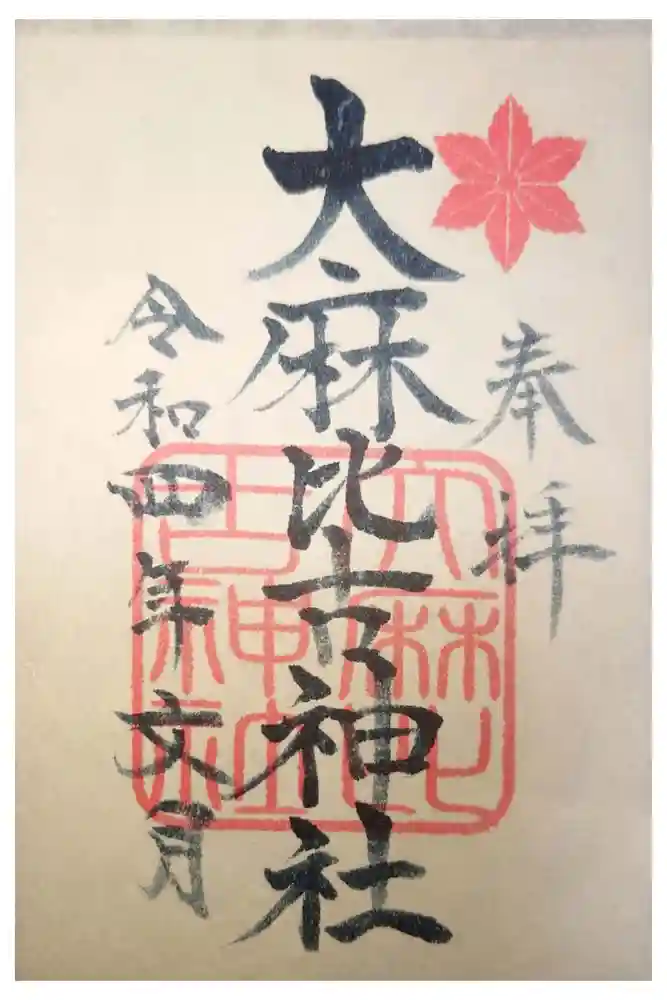 奉拝
大麻比古神社
令和四年文月
大麻比
古神社